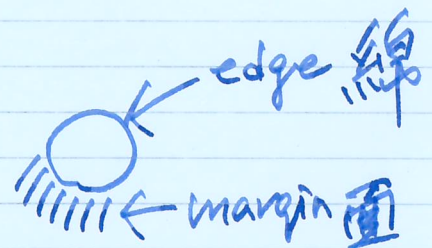 edge 綿
margin 面